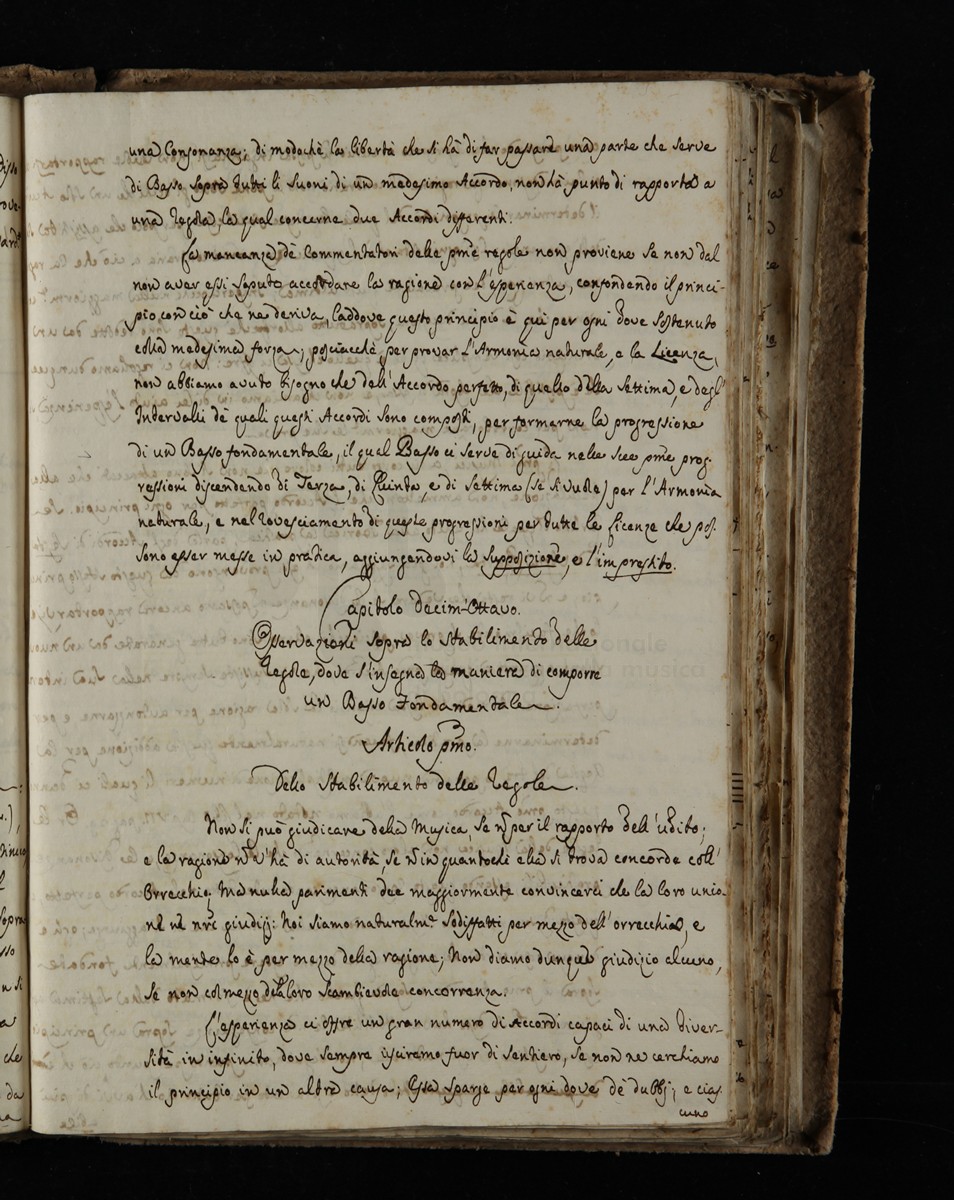 una Consonanza; di modochè la libertà che si hà di far passare una parte che serve
di Basso sopra tutti li suoni di un medesimo Accordo, non hà punto di rapporto a
una Regola, la qual concerne due Accordi differenti.
La mancanza de Commentatori delle pme regole non proviene se non dal
non aver essi saputo accordare la ragione con l'esperienza, confondendo il princi-
pio con ciò che ne deriva, laddove questo principio è qui per ogni dove sostenuto
colla medesima forza; posciacchè, per provar l'Armonia naturale, e la Licenza,
non abbiamo avuto bisogno che dell'Accordo perfetto, di quello della Settima, e degl'
Intervalli de quali questi Accordi sono composti, per formarne la progressione
di un Basso fondamentale, il qual Basso ci serve di guida nelle sue pme prog-
ressioni discendendo di Terza, di Quinta, e di Settima (se si vuole) per l'Armonia
naturale, e nel rovesciamento di queste progressioni per tutte le licenze che pos-
sono esser messe in pratica, aggiungendovi la supposizione, e l'imprestito.
Capitolo Decim'Ottavo.
Osservazioni sopra lo stabilimento delle
Regole, dove s'insegna la maniera di comporre
un Basso Fondamentale.
Articolo pmo.
Dello Stabilimento delle Regole.
Non si può giudicare della Musica, se ñ per il rapporto dell'udito;
e la ragione ñ v'hà di autorità, se ñ in quantochè ella si trova concorde coll'
Orrecchio; Ma nulla parimenti dee maggiormente convincerci che la loro unio-
ne ne nri giudizj: Noi siamo naturalmte sodisfatti per mezzo dell'orrecchio, e
la mente lo è per mezzo della ragione; Non diamo dunque giudizio alcuno,
se non col mezzo della loro scambievole concorrenza.
L'esperienza ci offre un gran numero di Accordi capaci di una diver-
sità in infinito, dove sempre usciremo fuor di sentiero, se non ne cerchiamo
il principio in un altra causa; Essa sparge per ogni dove de dubbj; e cias-
cuno